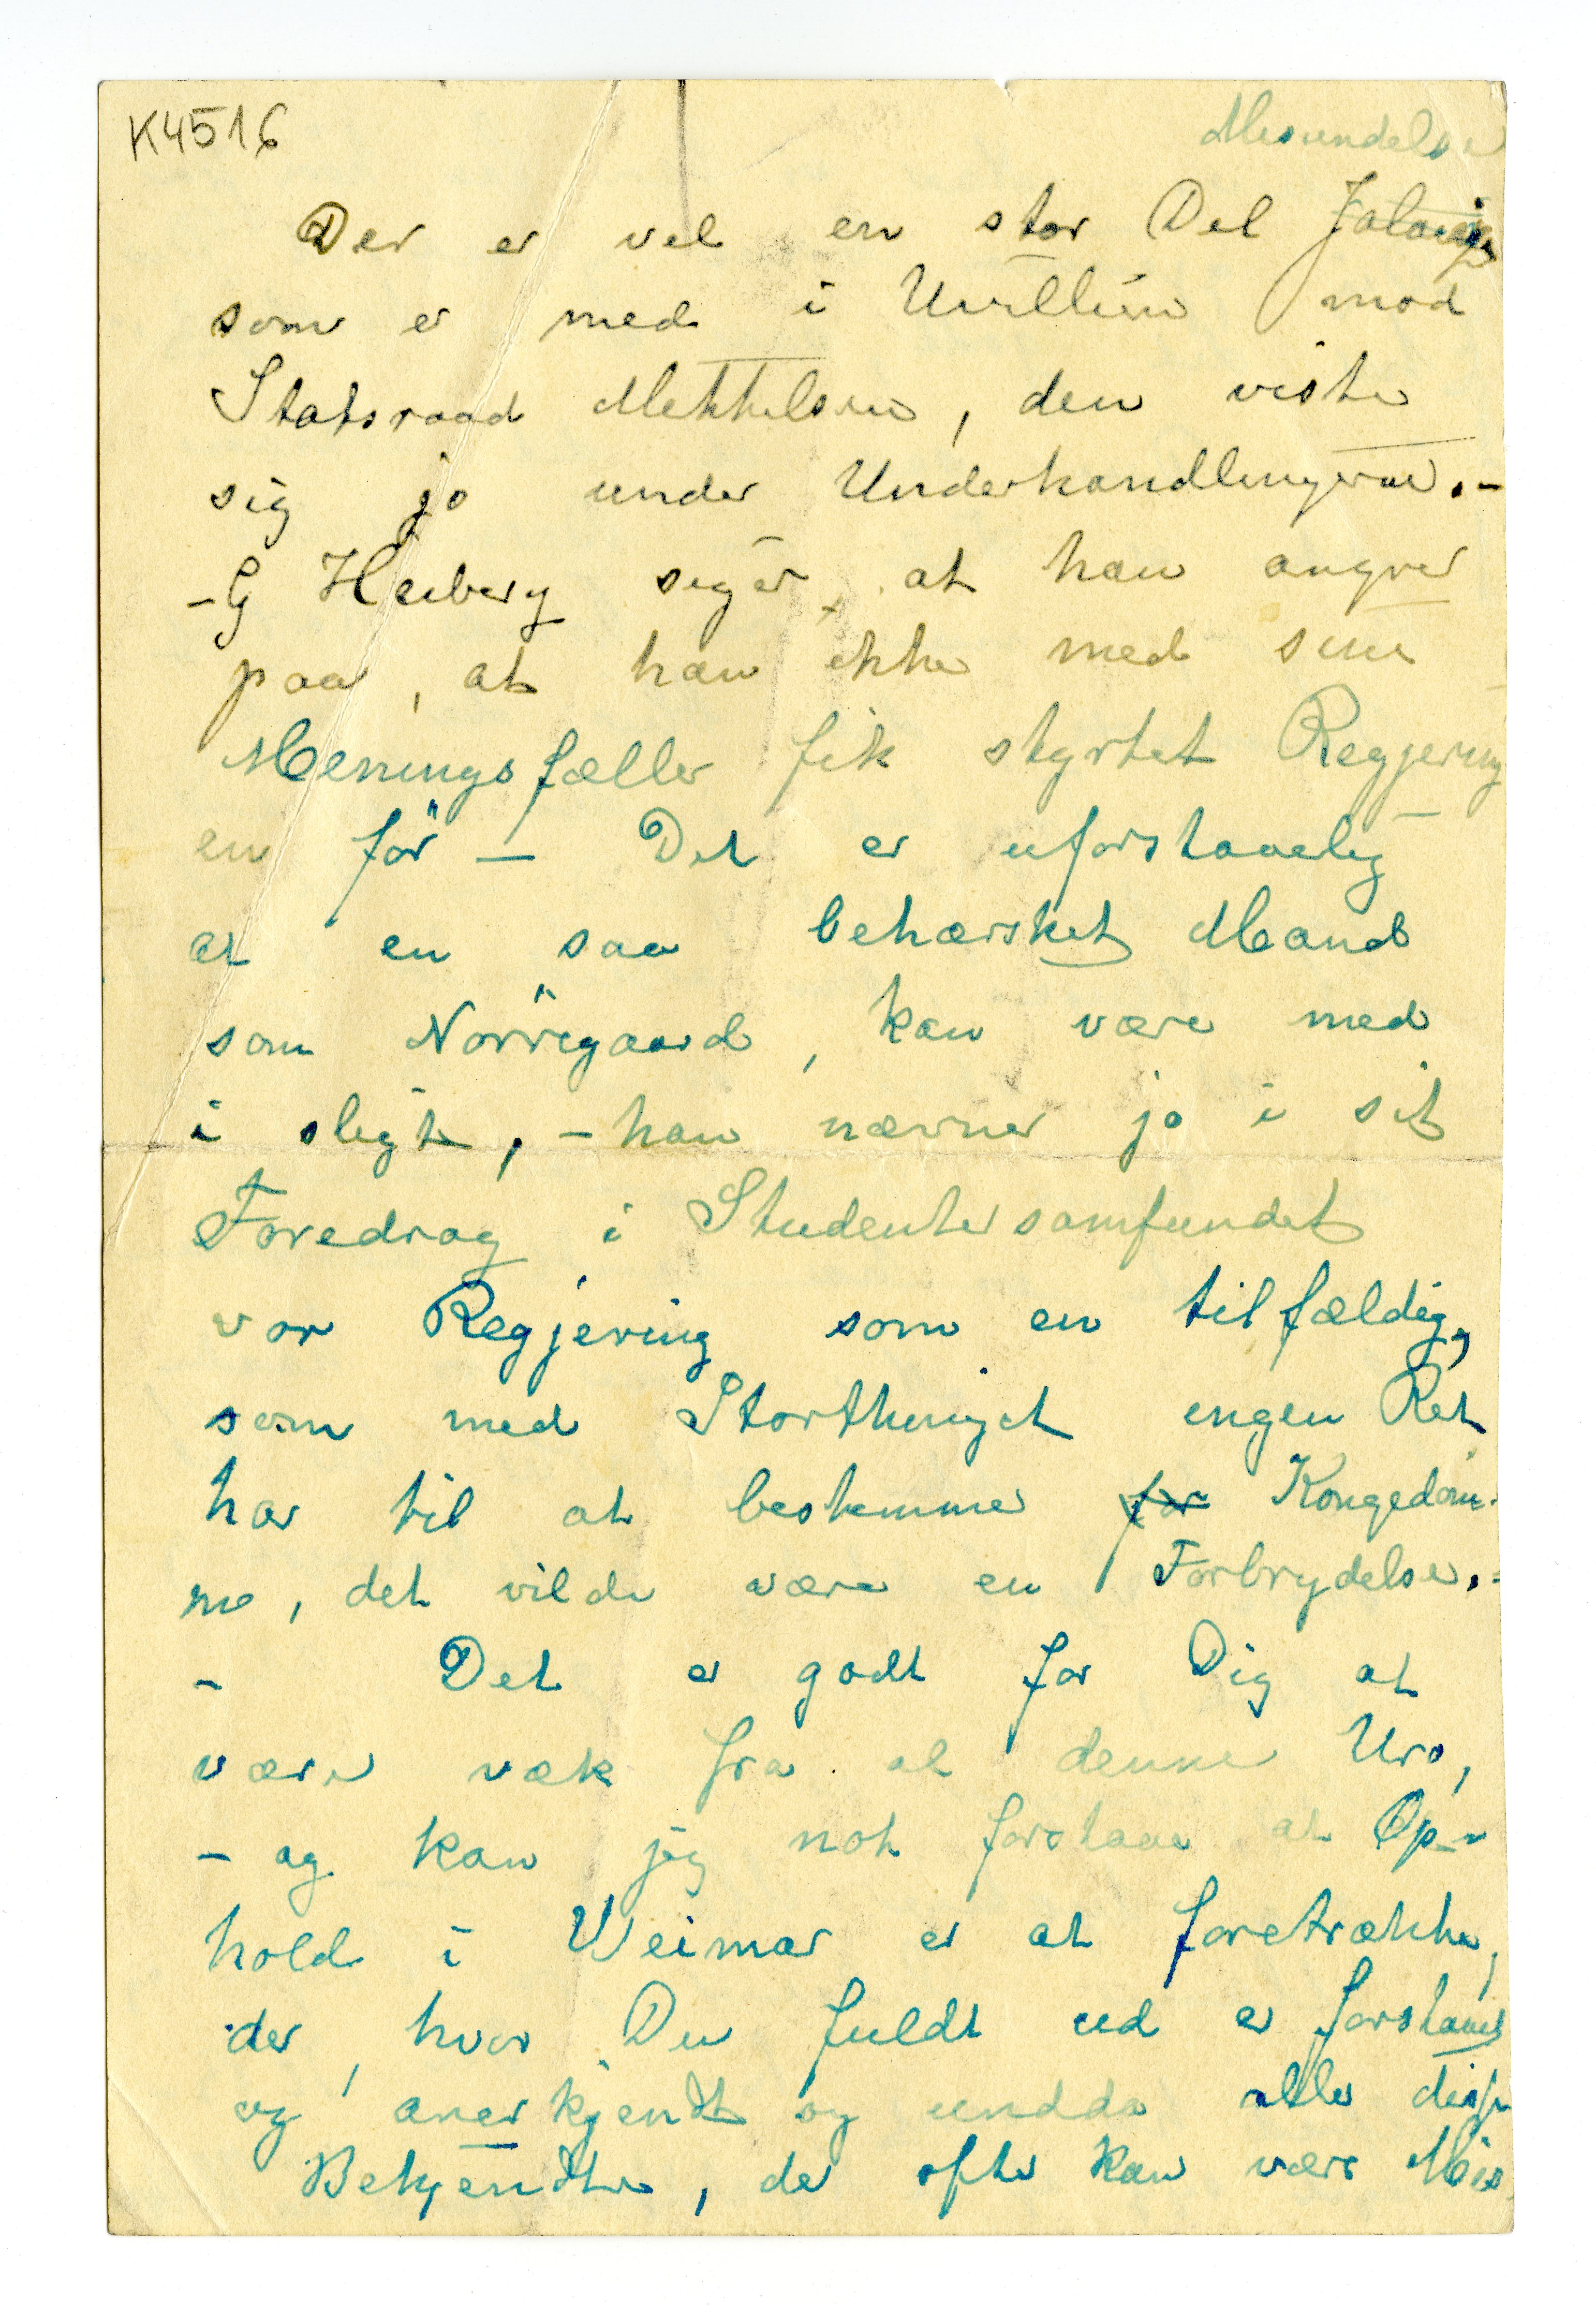 K4516
Misundelse
Der er vel en stor Del Jalousi
som er med i Uvillien mod
Statsraad Mekkelsen, den viste
sig jo under Underhandlingerne.-
- G Heiberg siger, at han angrer
paa, at han ikke med sine
Meningsfæller fik styrtet Regjering
en för — Det er uforstaaelig
at en saa behærsket Mand
som Nörregaard, kan være med
i sligt, - han nævner jo i sit
Foredrag i Studentersamfundet
vor Regjering som en tilfældig,
som med Storthinget ingen Ret
har til at bestemme for Kongedöm-
me, det vilde være en Forbrydelse.-
- Det er godt for Dig at
være væk fra al denne Uro,
- og kan jeg nok forstaae at Op-
hold i Weimar er at foretrække,
der, hvor Du fuldt ud er forstaaet
og anerkjendt og undda alle disse
Bekjendte, der ofte kan være Mis